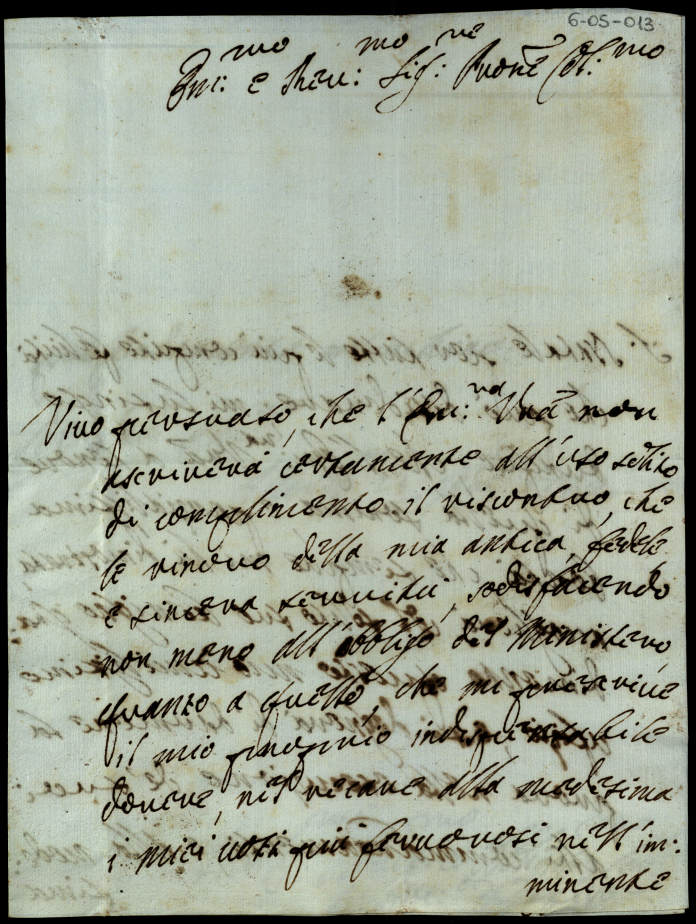 6-05-013
Em:mo e Rev:mo Sig:re Prone Col:mo
Vivo persuaso, che l'Em:za Vra non
ascriverà certamente all'uso solito
di complimento il riscontro, che
le rinovo della mia antica, fedele
e sincera servitù, sodisfacendo
non meno all'obbligo del Ministero,
quanto a quello, che mi prescrive
il mio proprio indispensabile
dovere, nel recare alla medesima
i miei voti più fervorosi nell'im:
minente